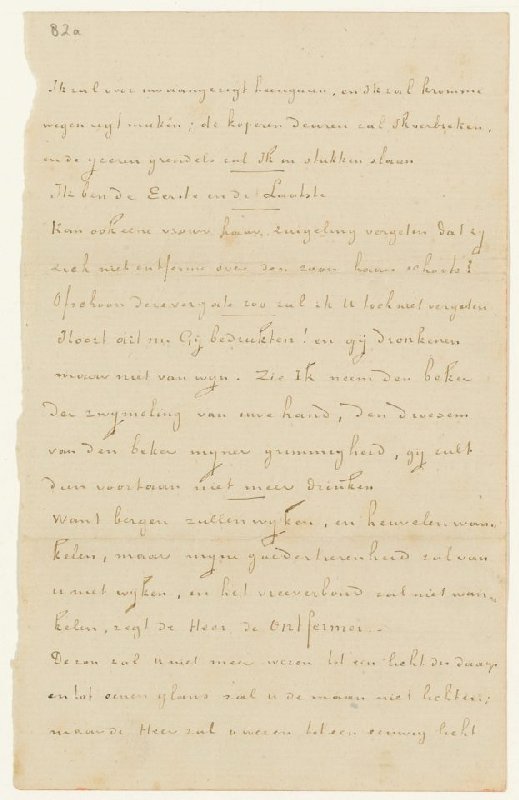 82a
Ik zal over uw aangezigt heengaan, en Ik zal kromme
wegen regt maken; de koperen deuren zal Ik verbreken,
en de yzeren grendels zal Ik in stukken slaan
Ik ben de Eerste en de Laatste
Kan ook eene vrouw haar zuigeling vergeten dat zy
zich niet ontferme over den zoon haars schoots?
Ofschoon deze vergate zoo zal ik U toch niet vergeten
Hoort dit nu Gij bedrukten! en gij dronkenen
maar niet van wyn. Zie Ik neem den beker
der zwymeling van uwe hand, den droesem
van den beker myner grimmigheid, gij zult
dien voortaan niet meer drinken
Want bergen zullen wyken, en heuvelen wan-
kelen, maar myne goedertierenheid zal van
u niet wyken, en het vreeverbond zal niet wan-
kelen, zegt de Heer, de Ontfermer.
De zon zal u niet meer wezen tot een licht des daags
en tot eenen glans zal u de maan niet lichten;
maar de Heer zal u wezen tot een eeuwig licht